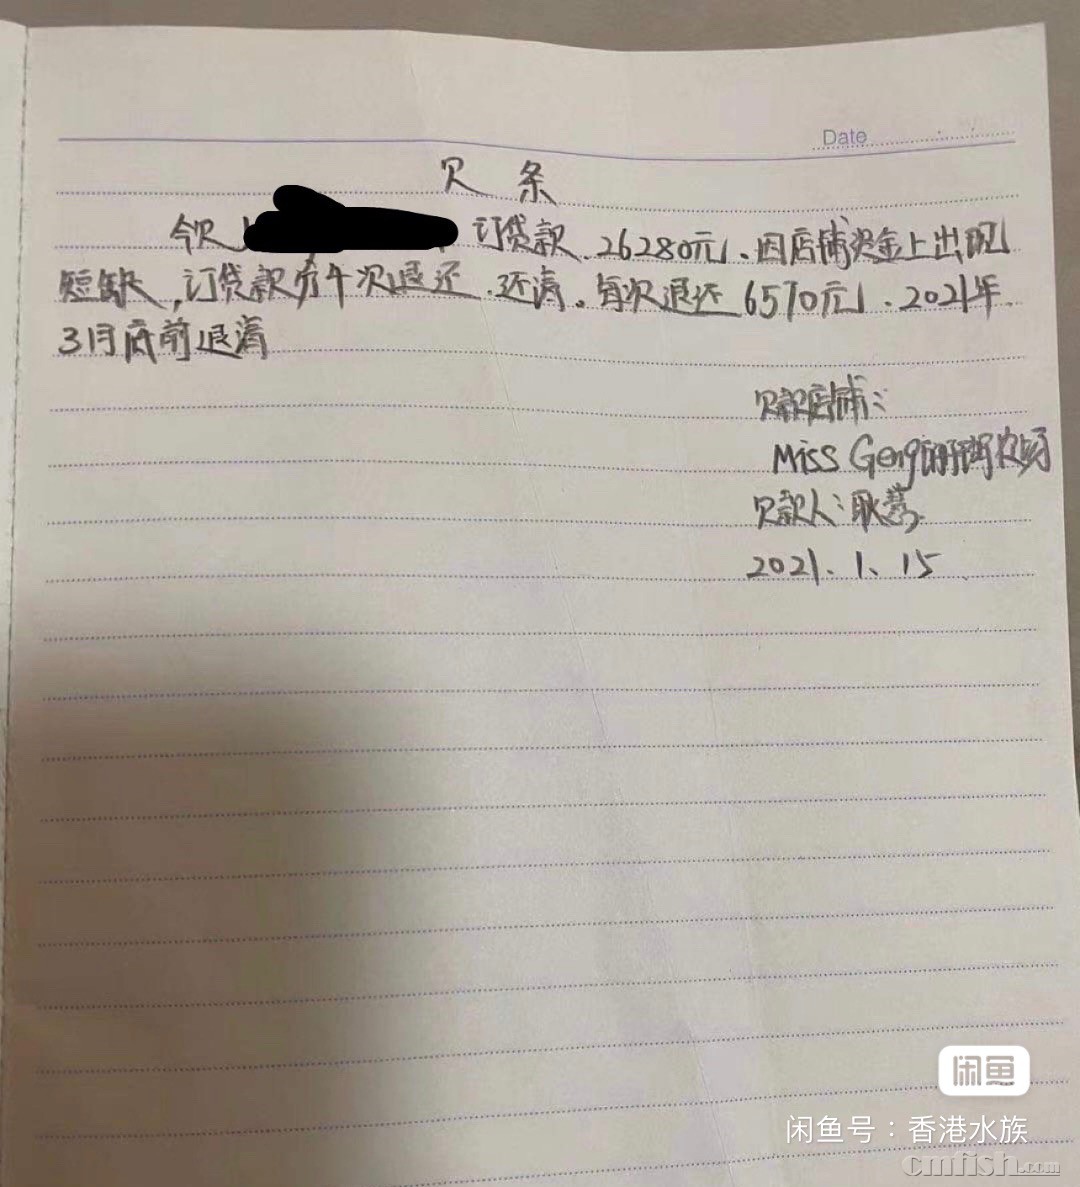 Date
欠 条
今欠 订贷款、26280元、因店铺资金上出现
短缺，订贷款分4次退还、还清。每次退还6570元、2021年
3月底前退清
欠款店铺：
Miss Geng
欠款人：耿慧
2021.1.15
闲鱼
闲鱼号：香港水族
cmfish.com